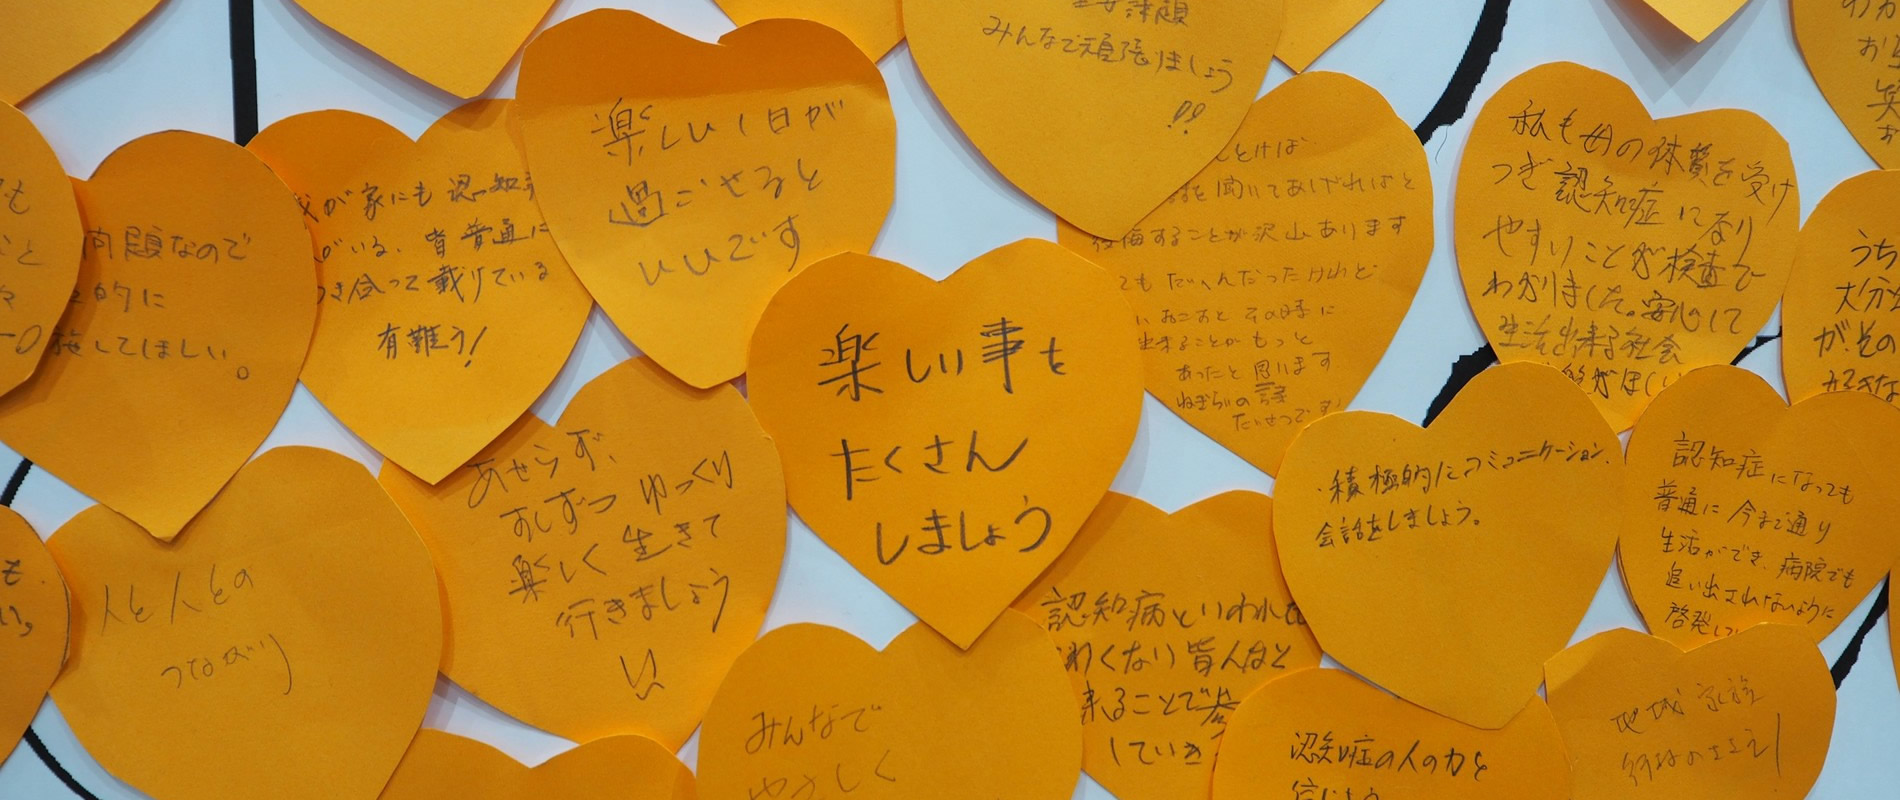 みんなで頑張りましょう
!!
楽しい1日が
過ごせると
いいです
私も母の体質を受け
つぎ認知症になり
やすいことが検査で
わかりました。安心して
生活出来る社会
がほしい
が家にも認知
がいる、皆普通に
つき合って戴りている
有難う!
問題なので
的に
施してほしい。
を聞いてあげればよ
後悔することが沢山あります
ても たいへんだったけれど
その時に
出来ることが もっと
あったと思います
ねぎらいの言葉
たいせつです
楽しい事も
たくさん
しましょう
あせらず、
すしずつ ゆっくり
楽しく 生きて
行きましょう
!!
積極的にコミュニケーション、
会話をしましょう。
認知症になっても
普通に 今まで通り
生活ができ、病院でも
追い出されないように
啓発し
うち
大分
が、その
人と人との
つながり
認知病といわれても
怖くない皆んなと
来ることで
していき
みんなで
やさしく
認知症の人の力を
信じよう
地域 家族